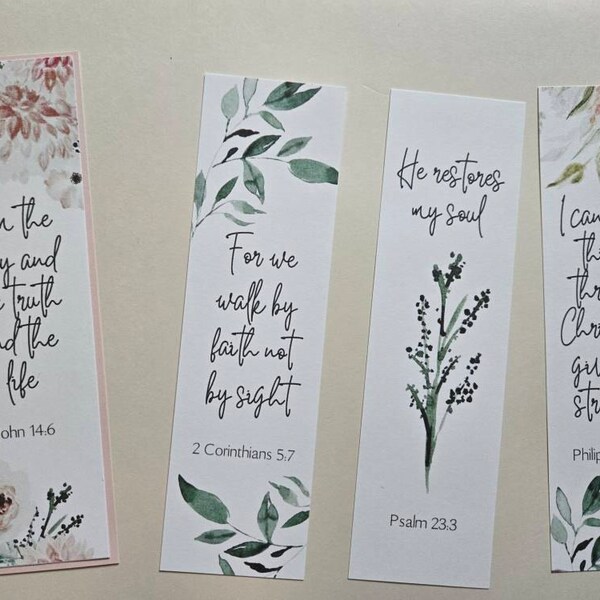 n the
y and
truth
nd the
life
ohn 14:6
For we
walk by
faith not
by sight
2 Corinthians 5:7
He restores
my soul
Psalm 23:3
I can
thi
thr
Chri
giv
str
Philip